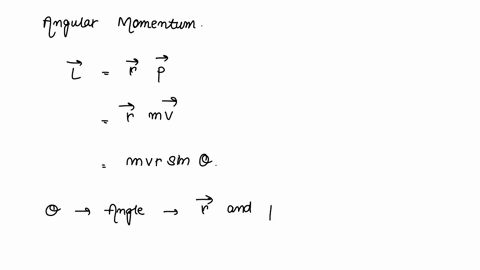 Angular Momentum.
L⃗ = r⃗ p⃗
= r⃗ mv⃗
= mvr sin θ.
θ → Angle → r⃗ and